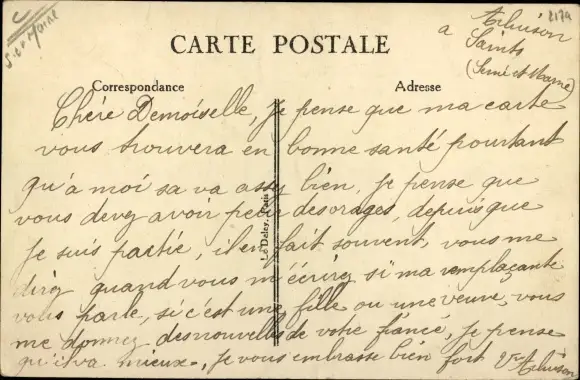 2179
S. et Marne
CARTE POSTALE
Correspondance
Adresse
a Saints
(Seine et Marne)
Chère Demoiselle, je pense que ma carte
vous trouvera en bonne santé pourtant
qu'à moi sa va assez bien, je pense que
vous devez avoir peur des orages, depuis que
je suis partie, il en fait souvent, vous me
direz quand vous m'écrirez si ma remplaçante
vous parle, si c'est une fille ou une veuve, vous
me donnez des nouvelles de votre fiancé, je pense
qu'il va mieux., je vous embrasse bien fort Vve